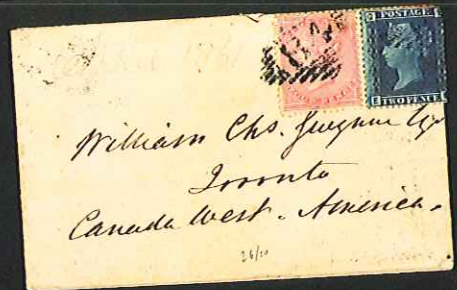 POSTAGE
TWO PENCE
William Chs. Gwynne Esqr
Toronto
Canada West. America.
26/10